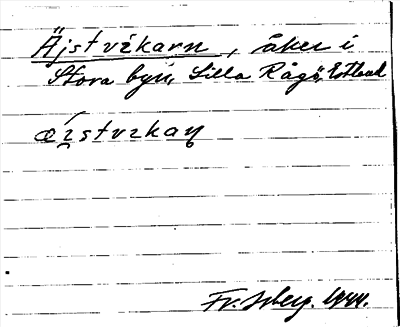 Äjstvikarn, åker i
Stora byn, Lilla Rågö, Estland
æi̯stvikaṇ
1944.